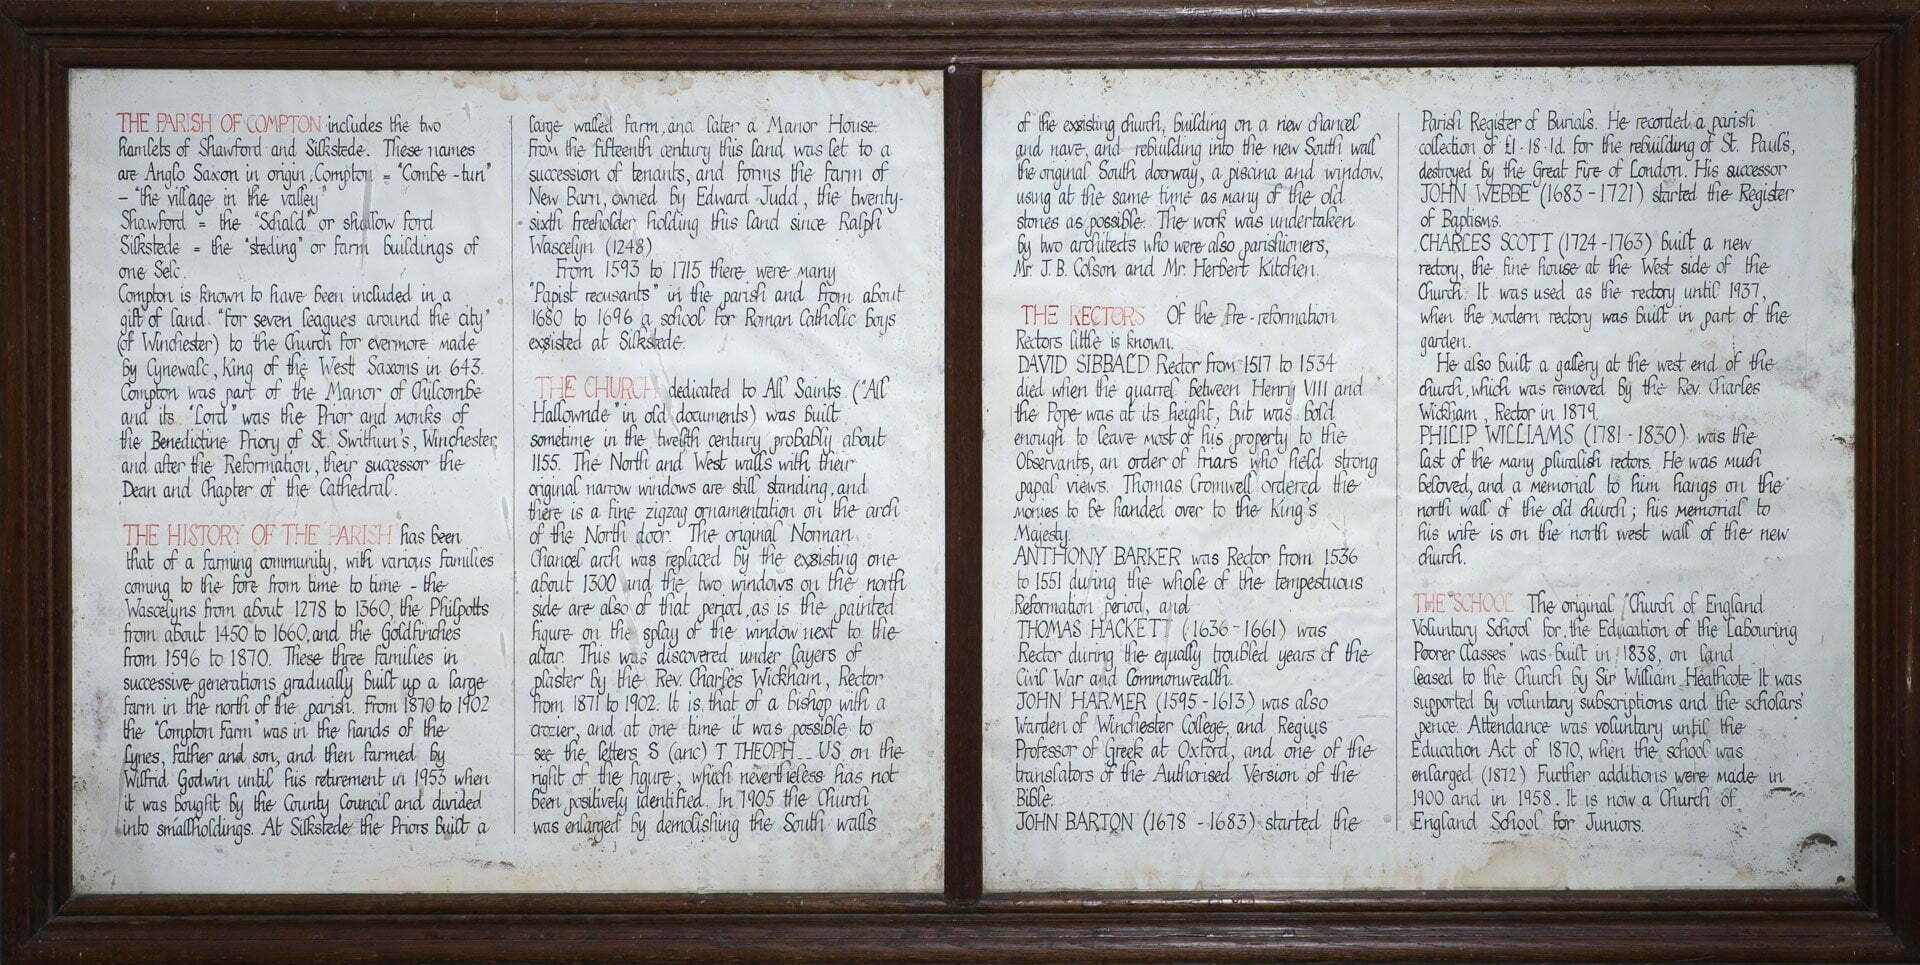 THE PARISH OF COMPTON includes the two
hamlets of Shawford and Silkstede. These names
are Anglo Saxon in origin, Compton = "Combe-tun"
- "the village in the valley"
Shawford = the "Schald" or shallow ford
Silkstede = the "steding" or farm buildings of
one Selc.
Compton is known to have been included in a
gift of land "for seven leagues around the city"
(of Winchester) to the Church for evermore made
by Cynewalc, King of the West Saxons in 643.
Compton was part of the Manor of Chilcombe
and its "Lord" was the Prior and monks of
the Benedictine Priory of St. Swithun's, Winchester,
and after the Reformation, their successor the
Dean and Chapter of the Cathedral.
THE HISTORY OF THE PARISH has been
that of a farming community, with various families
coming to the fore from time to time - the
Wascelyns from about 1278 to 1360, the Philpotts
from about 1450 to 1660, and the Goldfinches
from 1596 to 1870. These three families in
successive generations gradually built up a large
farm in the north of the parish. From 1870 to 1902
the "Compton Farm" was in the hands of the
Lynes, father and son, and then farmed by
Wilfrid Godwin until his retirement in 1953 when
it was bought by the County Council and divided
into smallholdings. At Silkstede the Priors built a
large walled farm, and later a Manor House
From the fifteenth century this land was let to a
succession of tenants, and forms the farm of
New Barn, owned by Edward Judd, the twenty-
sixth freeholder holding this land since Ralph
Wascelyn (1248)
From 1593 to 1715 there were many
"Papist recusants" in the parish and from about
1680 to 1696 a school for Roman Catholic boys
exsisted at Silkstede.
THE CHURCH dedicated to All Saints ("All
Hallownde" in old documents) was built
sometime in the twelfth century, probably about
1155. The North and West walls with their
original narrow windows are still standing, and
there is a fine zigzag ornamentation on the arch
of the North door. The original Norman
Chancel arch was replaced by the exsisting one
about 1300 and the two windows on the north
side are also of that period, as is the painted
figure on the splay of the window next to the
altar. This was discovered under layers of
plaster by the Rev. Charles Wickham, Rector
from 1871 to 1902. It is that of a bishop with a
crozier, and at one time it was possible to
see the letters S (anc) T THEOPH__US on the
right of the figure, which nevertheless has not
been positively identified. In 1905 the Church
was enlarged by demolishing the South walls
of the exsisting church, building on a new chancel
and nave, and rebuilding into the new South wall
the original South doorway, a piscina and window,
using at the same time as many of the old
stones as possible. The work was undertaken
by two architects who were also parishioners,
Mr. J.B. Colson and Mr. Herbert Kitchen.
THE RECTORS Of the Pre-reformation
Rectors little is known.
DAVID SIBBALD Rector from 1517 to 1534
died when the quarrel between Henry VIII and
the Pope was at its height, but was bold
enough to leave most of his property to the
Observants, an order of friars who held strong
papal views. Thomas Cromwell ordered the
monies to be handed over to the King's
Majesty.
ANTHONY BARKER was Rector from 1536
to 1551 during the whole of the tempestuous
Reformation period, and
THOMAS HACKETT (1636-1661) was
Rector during the equally troubled years of the
Civil War and Commonwealth.
JOHN HARMER (1595-1613) was also
Warden of Winchester College, and Regius
Professor of Greek at Oxford, and one of the
translators of the Authorised Version of the
Bible.
JOHN BARTON (1678-1683) started the
Parish Register of Burials. He recorded a parish
collection of £1-18-1d. for the rebuilding of St. Paul's,
destroyed by the Great Fire of London. His successor
JOHN WEBBE (1683-1721) started the Register
of Baptisms.
CHARLES SCOTT (1724-1763) built a new
rectory, the fine house at the West side of the
Church. It was used as the rectory until 1937,
when the modern rectory was built in part of the
garden.
He also built a gallery at the west end of the
church, which was removed by the Rev. Charles
Wickham, Rector in 1879.
PHILIP WILLIAMS (1781-1830) was the
last of the many pluralish rectors. He was much
beloved, and a memorial to him hangs on the
north wall of the old church; his memorial to
his wife is on the north west wall of the new
church.
THE SCHOOL The original "Church of England
Voluntary School for the Education of the Labouring
Poorer Classes" was built in 1838, on land
leased to the Church by Sir William Heathcote It was
supported by voluntary subscriptions and the scholars'
pence. Attendance was voluntary until the
Education Act of 1870, when the school was
enlarged (1872) Further additions were made in
1900 and in 1958. It is now a Church of
England School for Juniors.